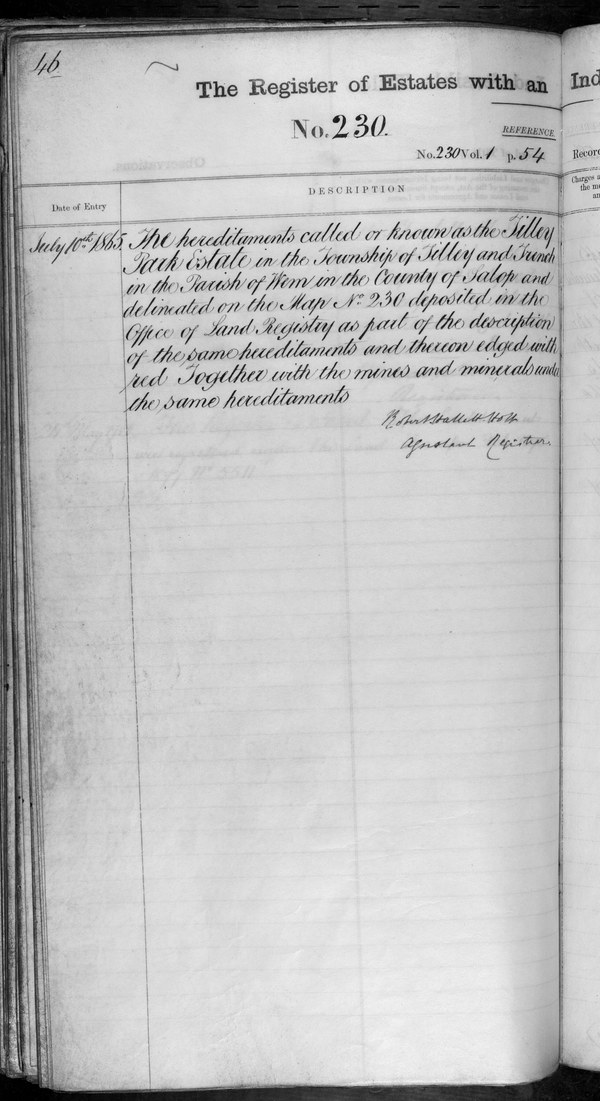 46
The Register of Estates with an Ind
No. 230.
REFERENCE
No. 230 Vol. 1 p. 54
Record
DESCRIPTION
Charges a
the m
an
Date of Entry
July 10th 1865
The hereditaments called or known as the Tilley
Park Estate in the Township of Tilley and Trench
in the Parish of Wem in the County of Salop and
delineated on the Map No. 230 deposited in the
Office of Land Registry as part of the description
of the same hereditaments and thereon edged with
red Together with the mines and minerals under
the same hereditaments
Robert Hallett Holt
Assistant Registrar
Observations.